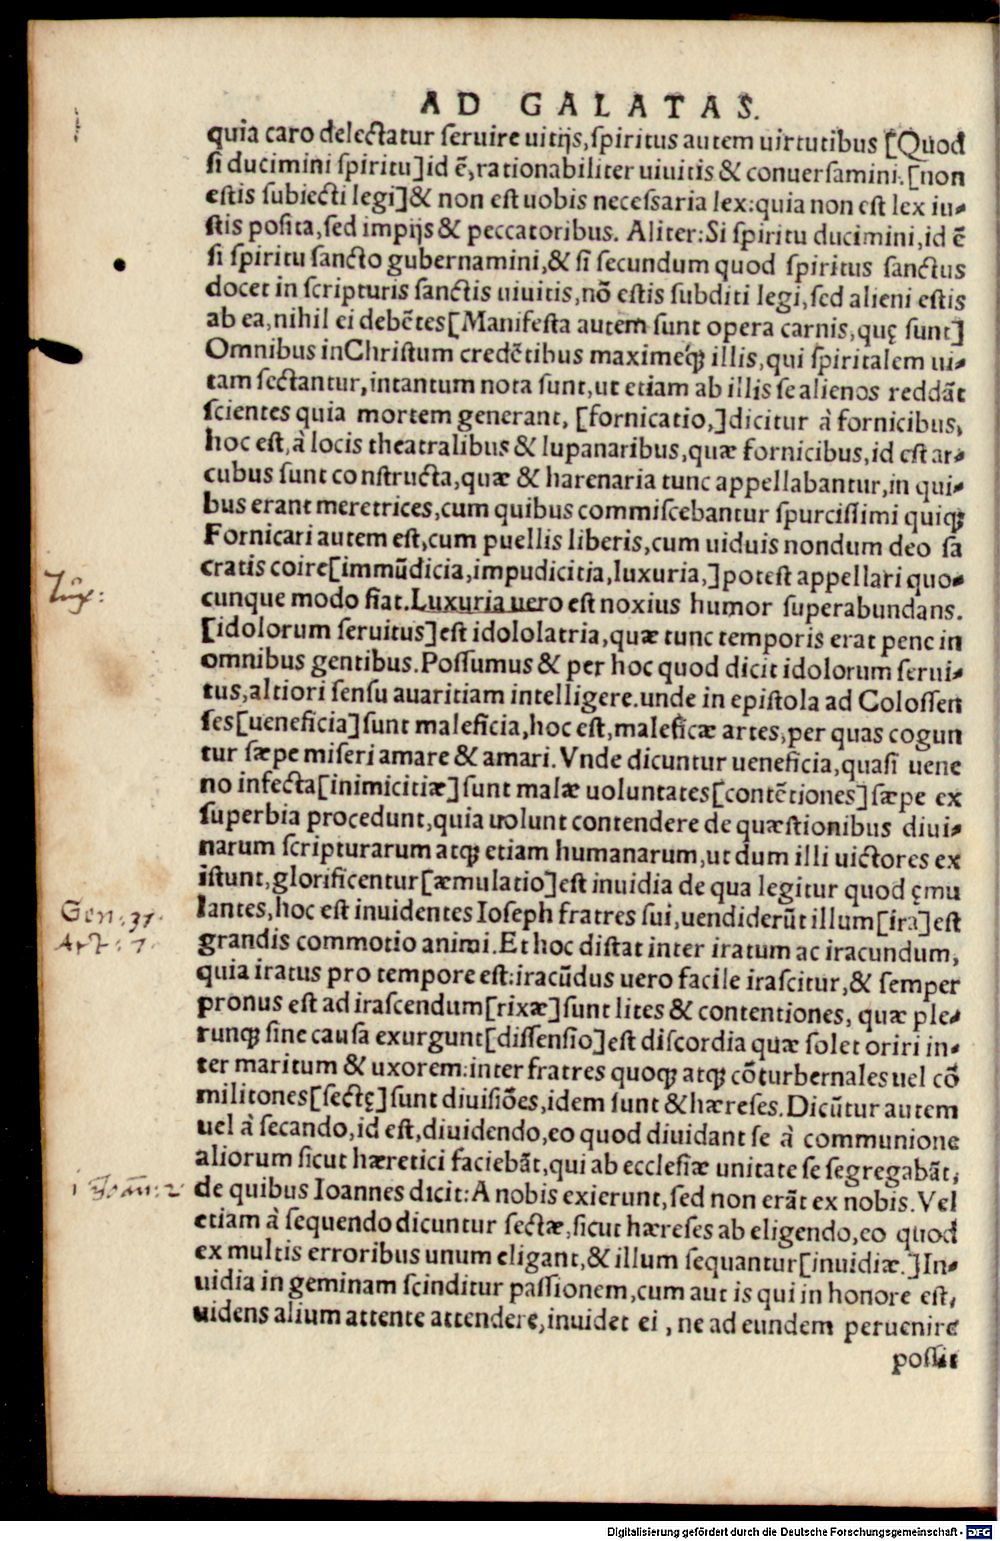 AD GALATAS.
quia caro delectatur seruire uitijs, spiritus autem uirtutibus [Quod
si ducimini spiritu] id ē, rationabiliter uiuitis & conuersamini. [non
estis subiecti legi] & non est uobis necessaria lex: quia non est lex iu-
stis posita, sed impijs & peccatoribus. Aliter: Si spiritu ducimini, id ē
si spiritu sancto gubernamini, & si secundum quod spiritus sanctus
docet in scripturis sanctis uiuitis, nō estis subditi legi, sed alieni estis
ab ea, nihil ei debētes [Manifesta autem sunt opera carnis, quę sunt]
Omnibus in Christum credētibus maximeq́; illis, qui spiritalem ui-
tam sectantur, intantum nota sunt, ut etiam ab illis se alienos reddāt
scientes quia mortem generant, [fornicatio,] dicitur à fornicibus,
hoc est, à locis theatralibus & lupanaribus, quæ fornicibus, id est ar-
cubus sunt constructa, quæ & harenaria tunc appellabantur, in qui-
bus erant meretrices, cum quibus commiscebantur spurcissimi quiq;
Fornicari autem est, cum puellis liberis, cum uiduis nondum deo sa
cratis coire [immūdicia, impudicitia, luxuria,] potest appellari quo-
Lux: cunque modo fiat. Luxuria uero est noxius humor superabundans.
[idolorum seruitus] est idololatria, quæ tunc temporis erat pene in
omnibus gentibus. Possumus & per hoc quod dicit idolorum serui-
tus, altiori sensu auaritiam intelligere. unde in epistola ad Colossen
ses [ueneficia] sunt maleficia, hoc est, maleficæ artes, per quas cogun
tur sæpe miseri amare & amari. Vnde dicuntur ueneficia, quasi uene
no infecta [inimicitiæ] sunt malæ uoluntates [contētiones] sæpe ex
superbia procedunt, quia uolunt contendere de quæstionibus diui-
narum scripturarum atq; etiam humanarum, ut dum illi uictores ex
istunt, glorificentur [æmulatio] est inuidia de qua legitur quod ęmu
Gen: 37. lantes, hoc est inuidentes Ioseph fratres sui, uendiderūt illum [ira] est
Act: 7. grandis commotio animi. Et hoc distat inter iratum ac iracundum,
quia iratus pro tempore est: iracūdus uero facile irascitur, & semper
pronus est ad irascendum [rixæ] sunt lites & contentiones, quæ ple-
runq; sine causa exurgunt [dissensio] est discordia quæ solet oriri in-
ter maritum & uxorem: inter fratres quoq; atq; cōturbernales uel cō
militones [sectę] sunt diuisiōes, idem sunt & hæreses. Dicūtur autem
uel à secando, id est, diuidendo, eo quod diuidant se à communione
aliorum sicut hæretici faciebāt, qui ab ecclesiæ unitate se segregabāt,
1 Joan: 2 de quibus Ioannes dicit: A nobis exierunt, sed non erāt ex nobis. Vel
etiam à sequendo dicuntur sectæ, sicut hæreses ab eligendo, eo quod
ex multis erroribus unum eligant, & illum sequantur [inuidiæ.] In-
uidia in geminam scinditur passionem, cum aut is qui in honore est,
uidens alium attente attendere, inuidet ei, ne ad eundem peruenire
possit
Digitalisierung gefördert durch die Deutsche Forschungsgemeinschaft - DFG